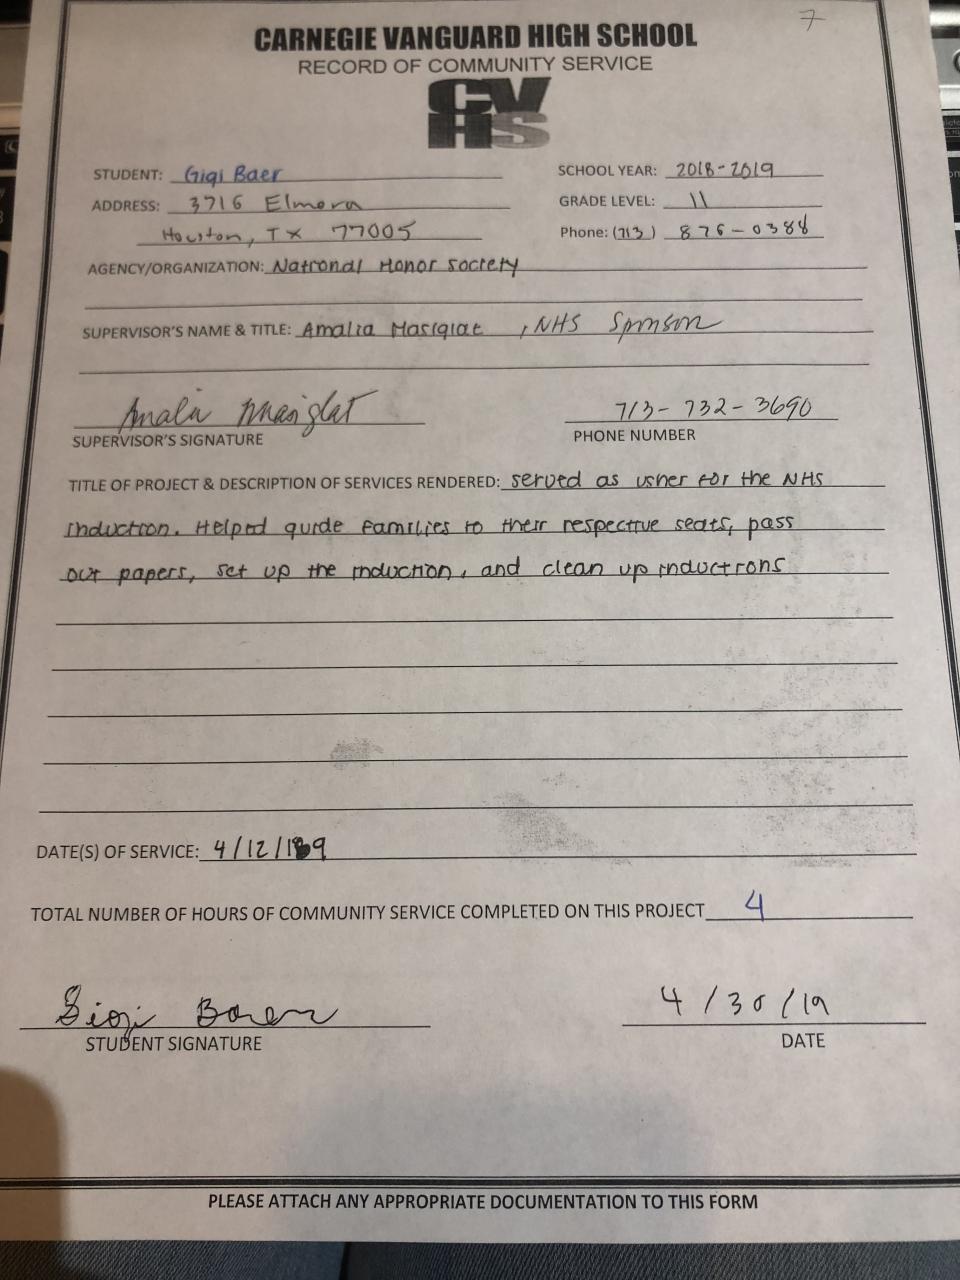 7
CARNEGIE VANGUARD HIGH SCHOOL
RECORD OF COMMUNITY SERVICE
CV
HS
STUDENT: Gigi Baer SCHOOL YEAR: 2018-2019
ADDRESS: 3716 Elmora GRADE LEVEL: 11
Houston, TX 77005 Phone: (713) 876-0388
AGENCY/ORGANIZATION: National Honor Society
SUPERVISOR'S NAME & TITLE: Amalia Masiglat, NHS Sponsor
Amalia Masiglat 713-732-3690
SUPERVISOR'S SIGNATURE PHONE NUMBER
TITLE OF PROJECT & DESCRIPTION OF SERVICES RENDERED: served as usher for the NHS
induction. Helped guide families to their respective seats, pass
out papers, set up the induction, and clean up inductions
DATE(S) OF SERVICE: 4/12/19
TOTAL NUMBER OF HOURS OF COMMUNITY SERVICE COMPLETED ON THIS PROJECT 4
Gigi Baer 4/30/19
STUDENT SIGNATURE DATE
PLEASE ATTACH ANY APPROPRIATE DOCUMENTATION TO THIS FORM